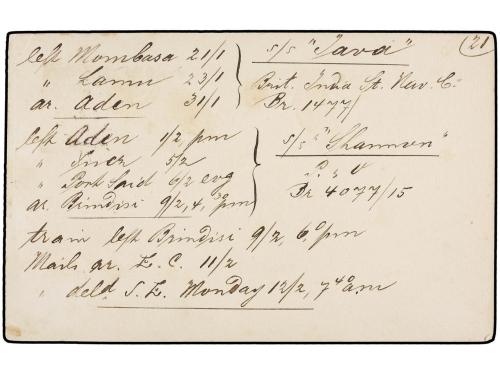 21
left Mombasa 21/1 s/s "Java"
" Lamu 23/1 Brit. India St. Nav. C:
ar. Aden 31/1 Br. 1477/
left Aden 1/2 pm s/s "Shannon"
" Suez 5/2 P. & O
" Port Said 6/2 evg Br 4077/15
ar. Brindisi 9/2, 4,30 pm
train left Brindisi 9/2, 6,0 pm
Mails ar. E. C. 11/2
" deld S. E. Monday 12/2, 7 40 a.m